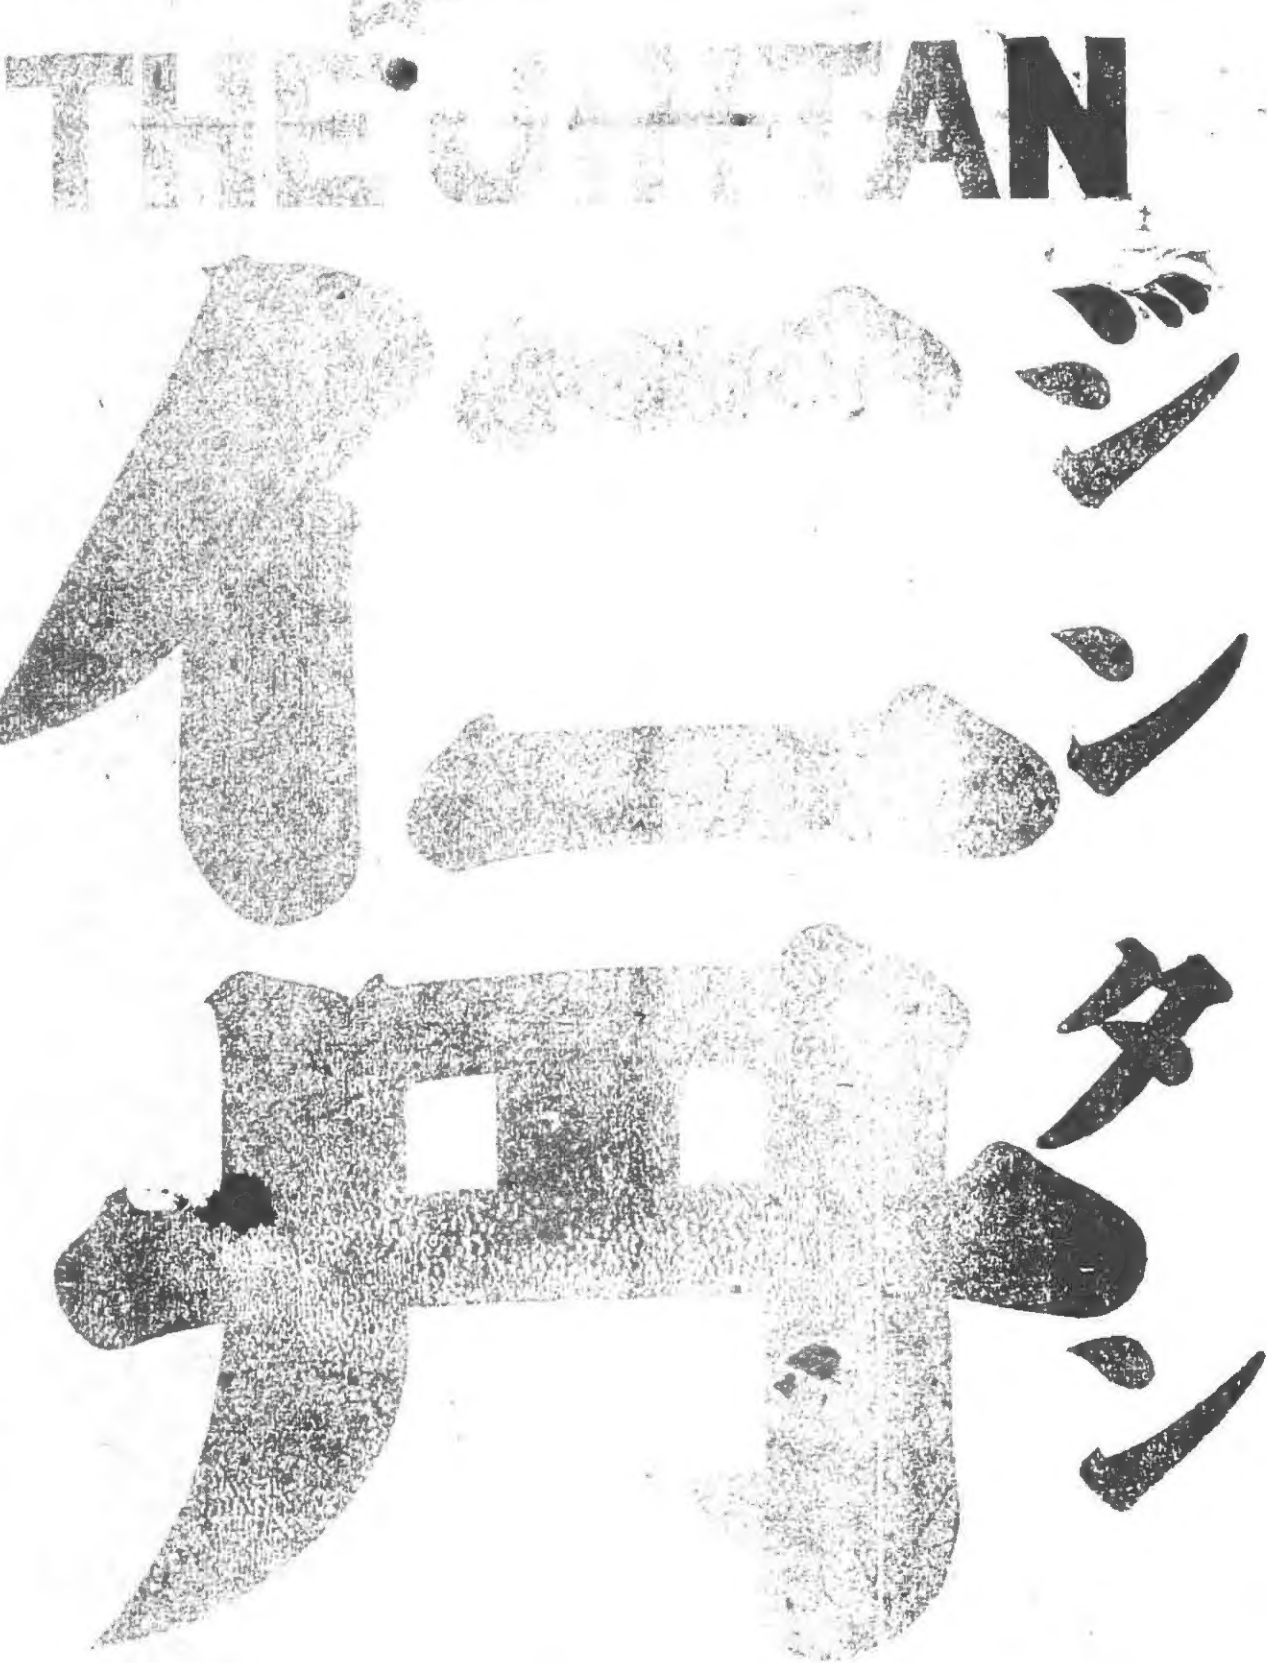 THE JINTAN
仁丹
ジンタン